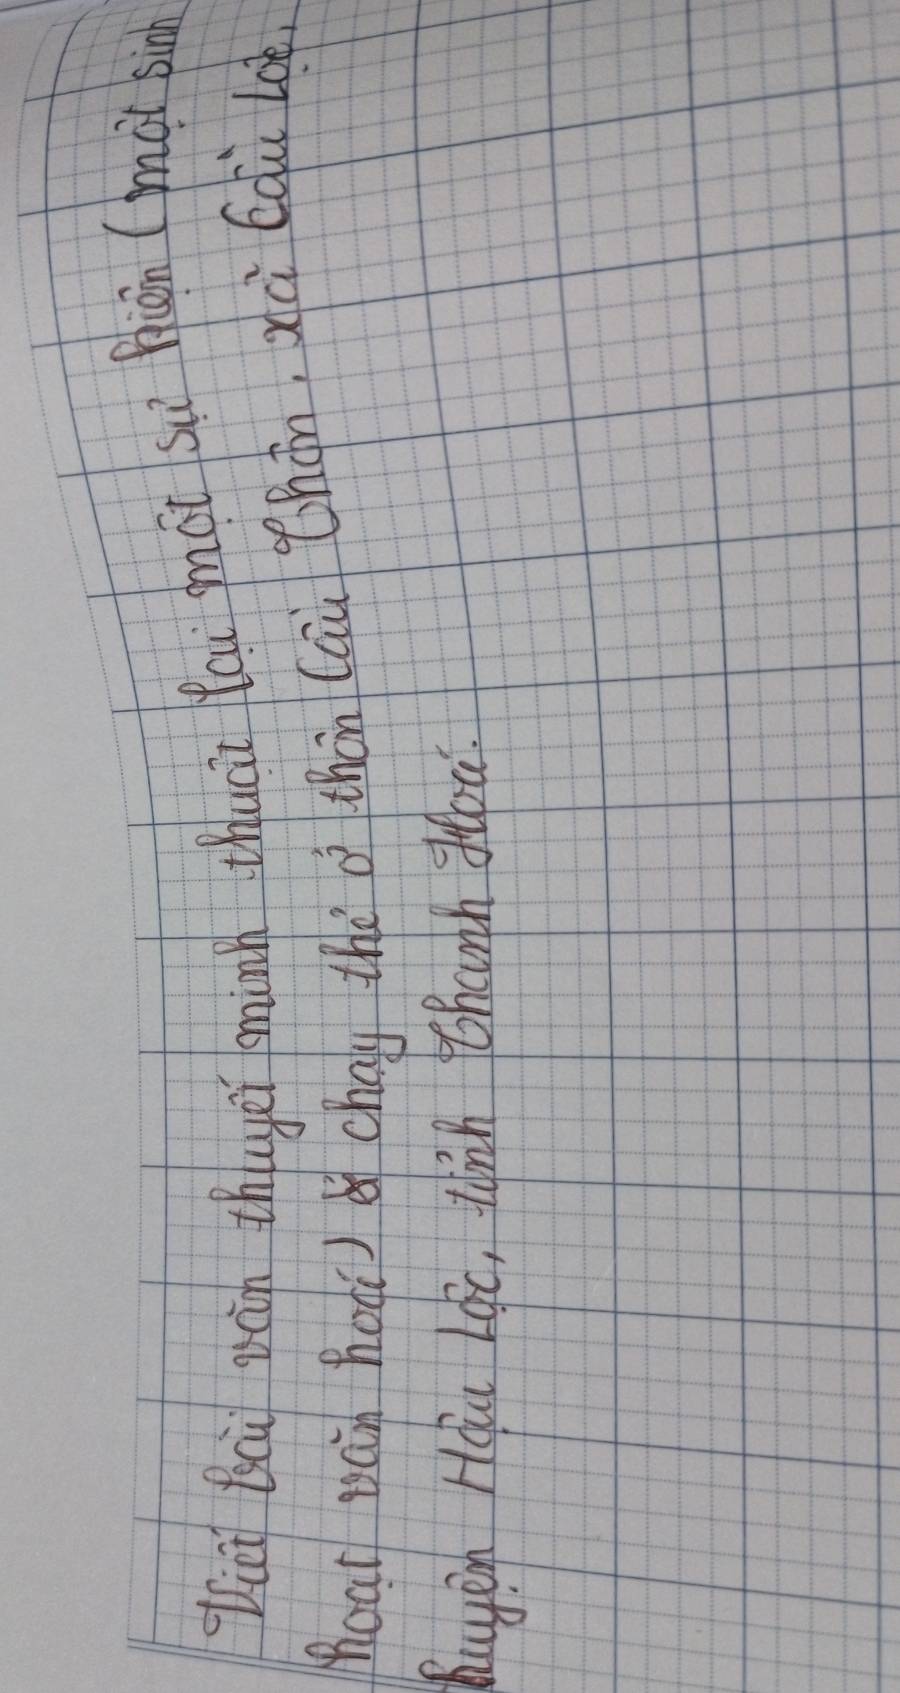 Viết bài văn thuyết minh thuật lại một sự kiện (một sinh
hoạt văn hoá) chạy thẻ ở thôn Cầu Thôn, xã Cầu Lộc,
huyện Hậu Lộc, tỉnh Thanh Hoá.